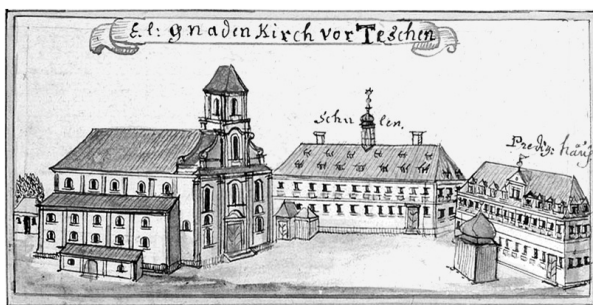 E.l: gnaden Kirch vor Teschen
Schulen.
Predig: häuß